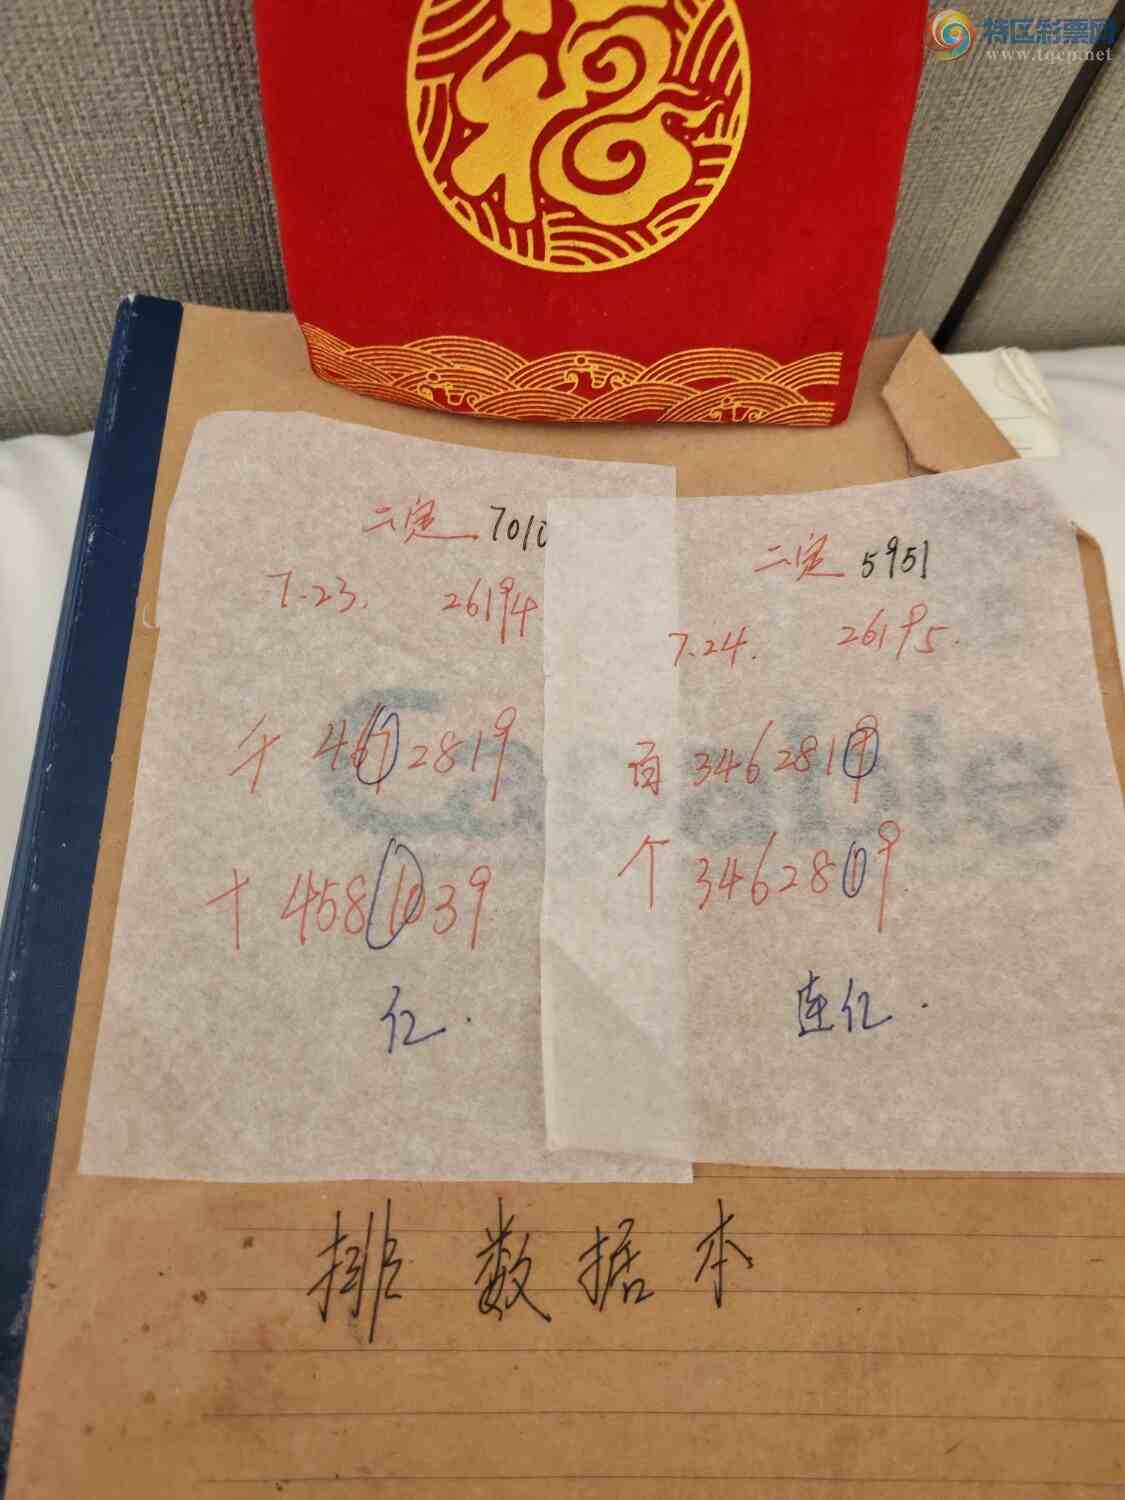 特区彩票网
www.tqcp.net
福
二定 7010
7.23. 26194
千 4672819
十 4581039
亿.
二定 5951
7.24. 26195.
百 3462819
个 3462819
连亿.
排数据本